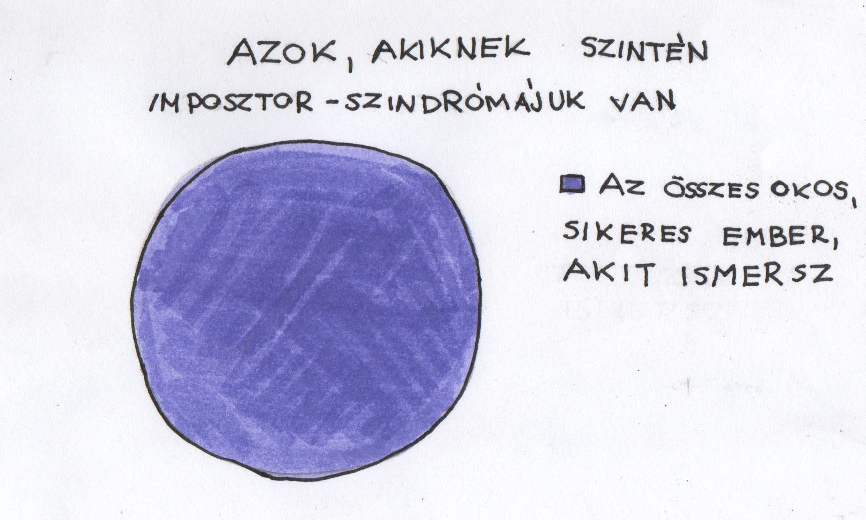 AZOK, AKIKNEK SZINTÉN
IMPOSZTOR-SZINDRÓMÁJUK VAN
AZ ÖSSZES OKOS,
SIKERES EMBER,
AKIT ISMERSZ